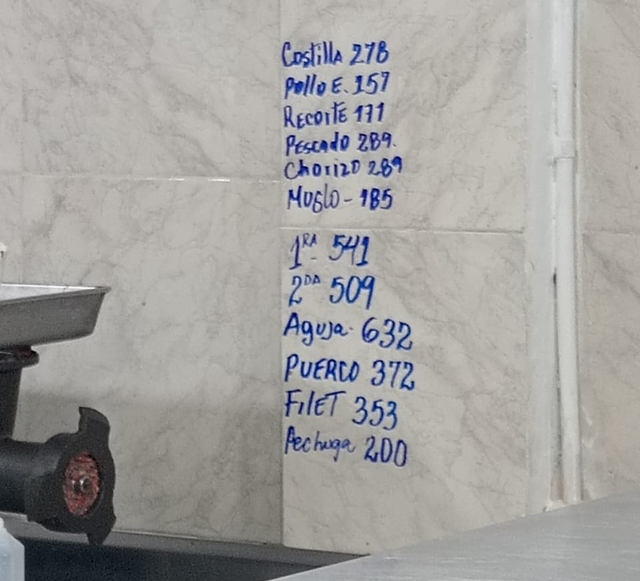 Costilla 278
Pollo E. 157
RECORTE 171
PESCADO 289.
Chorizo 289
MUSLO - 185
1RA 541
2DA 509
Aguja - 632
PUERCO 372
FilET 353
Pechuga 200